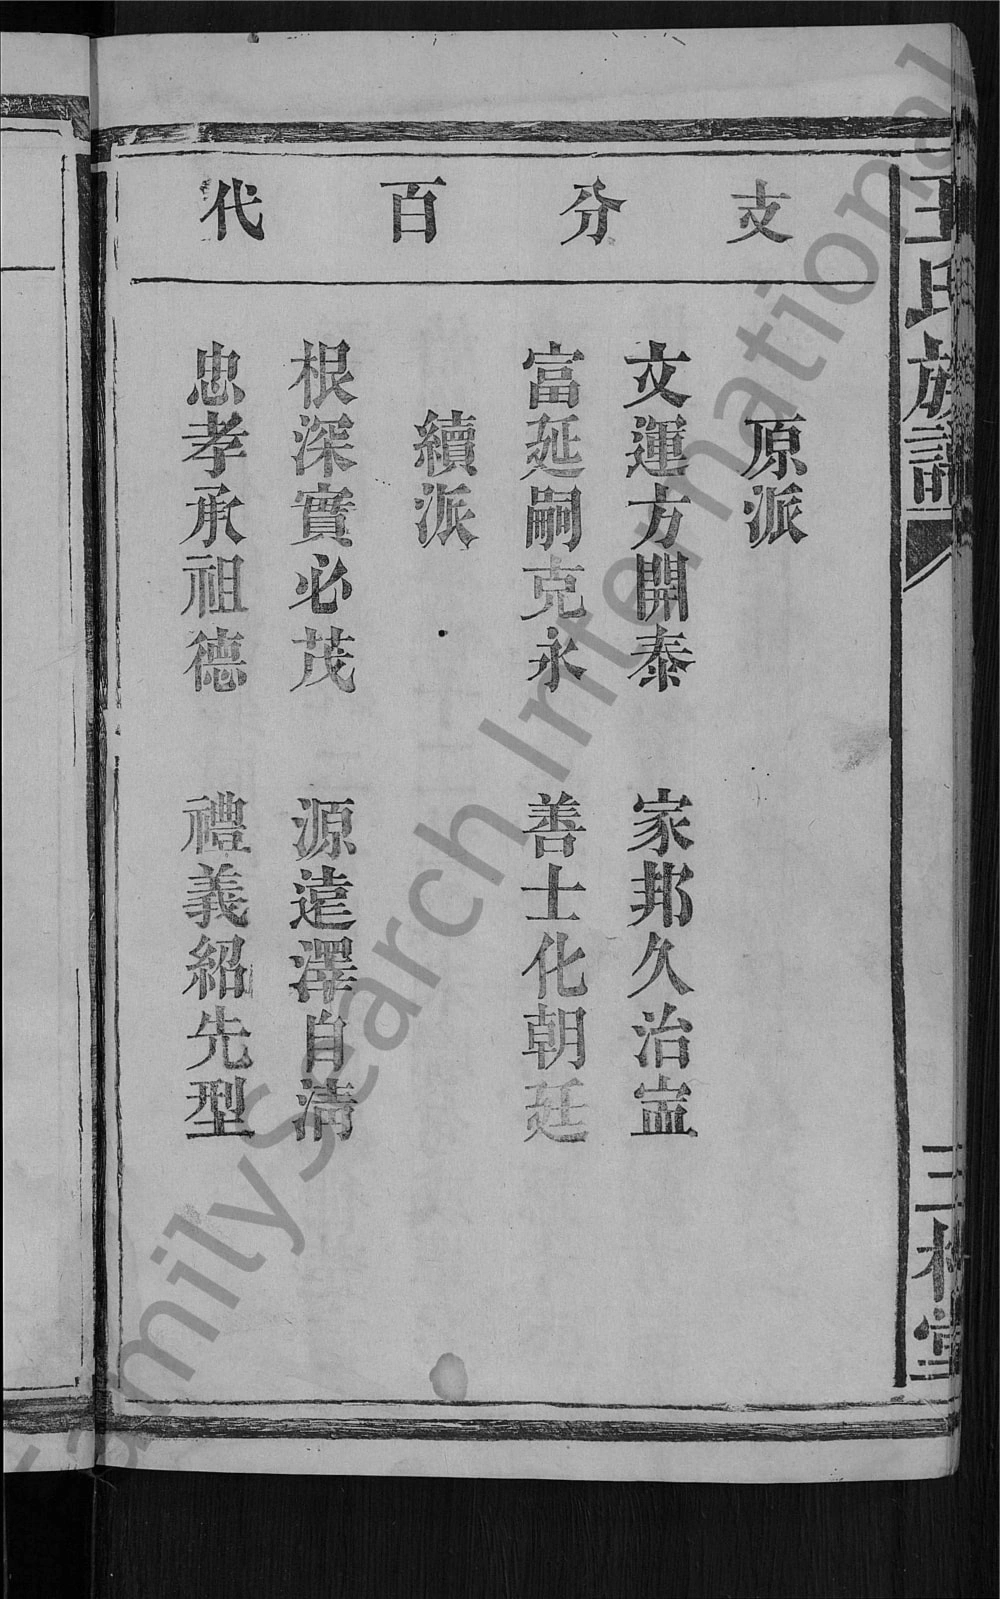 王氏族譜
三槐堂
支分百代
原派
文運方開泰 家邦久治寍
富延嗣克永 善士化朝廷
續派
根深實必茂 源遠澤自清
忠孝承祖德 禮義紹先型
FamilySearch International